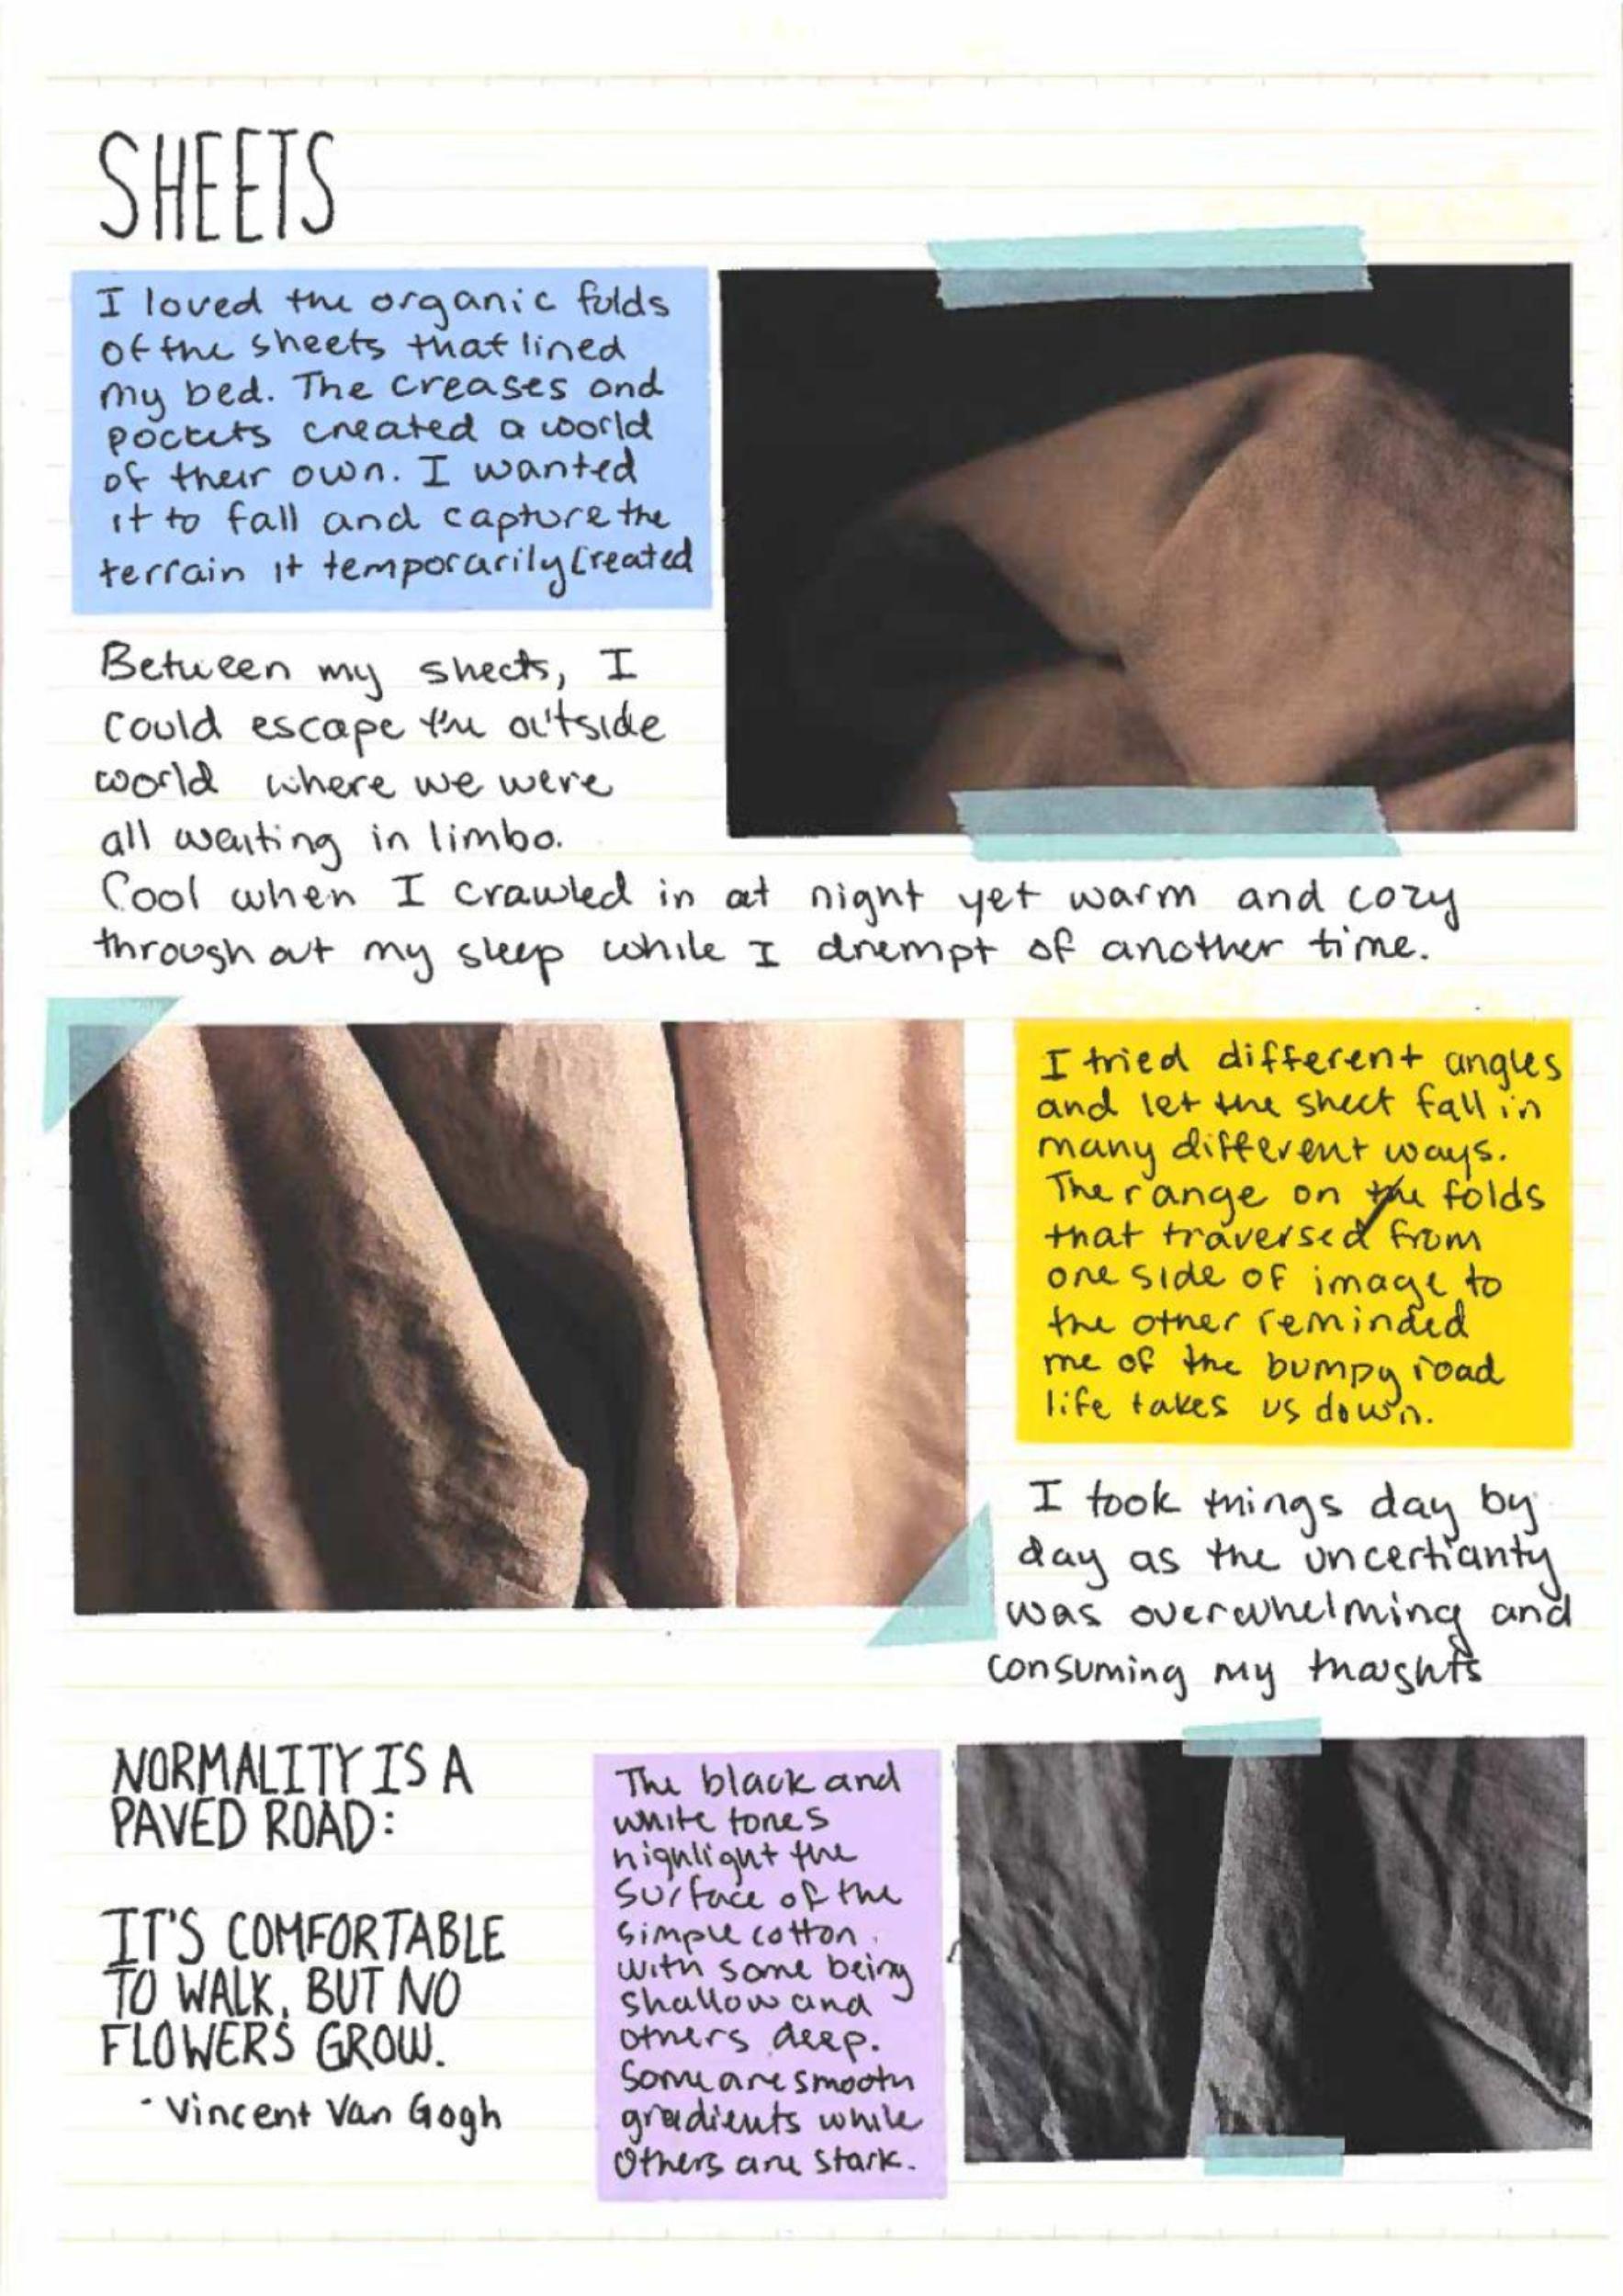 SHEETS
I loved the organic folds
of the sheets that lined
my bed. The creases and
pockets created a world
of their own. I wanted
it to fall and capture the
terrain it temporarily created
Between my sheets, I
could escape the outside
world where we were
all waiting in limbo.
Cool when I crawled in at night yet warm and cozy
throughout my sleep while I drempt of another time.
I tried different angles
and let the sheet fall in
many different ways.
The range on the folds
that traversed from
one side of image to
the other reminded
me of the bumpy road
life takes us down.
I took things day by
day as the uncertianty
was overwhelming and
consuming my thoughts
NORMALITY IS A
PAVED ROAD:
IT'S COMFORTABLE
TO WALK, BUT NO
FLOWERS GROW.
- Vincent Van Gogh
The black and
white tones
highlight the
surface of the
simple cotton.
with some being
shallow and
others deep.
Some are smooth
gradients while
others are stark.